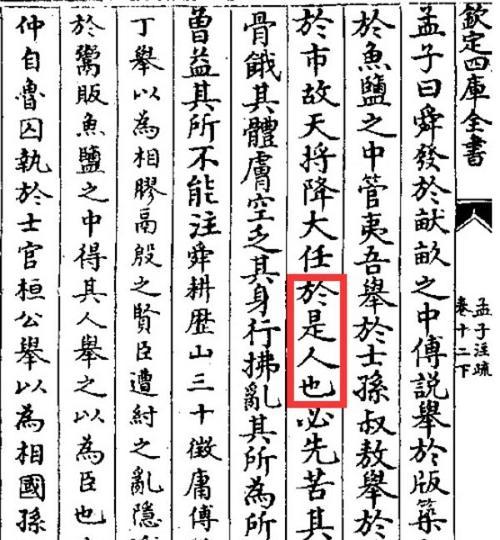 欽定四庫全書
孟子注疏
卷十二下
孟子曰舜發於畎畝之中傅説舉於版築
於魚鹽之中管夷吾舉於士孫叔敖舉於
於市故天將降大任於是人也必先苦其
骨餓其體膚空乏其身行拂亂其所為所
曾益其所不能注舜耕歴山三十徵庸傅
丁舉以為相膠鬲殷之賢臣遭紂之亂隠
於鬻販魚鹽之中得其人舉之以為臣也
仲自魯囚執於士官桓公舉以為相國孫